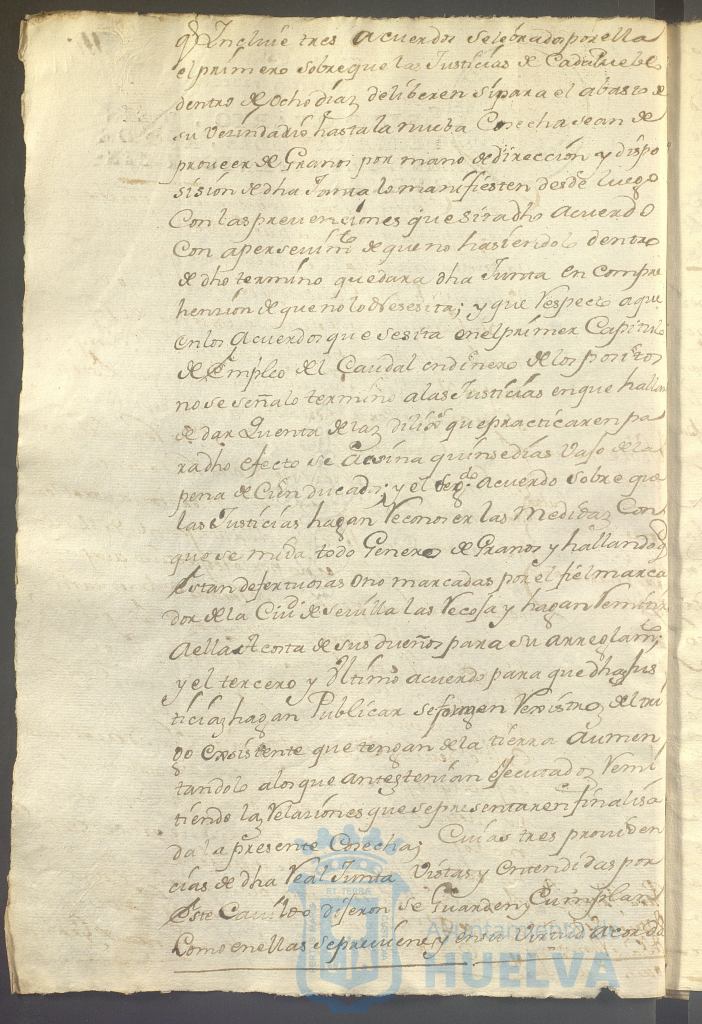 qe. Incluie tres Acuerdos selebrados por ella
el primero sobre que las Justicias de Cada Pueblo
dentro de ocho dias deliberen si para el abasto de
su Vezindario hasta la nueba Cosecha sean de
proveer de Granos por mano de dirección y dispo
sisión de dha Junta lo manifiesten desde luego
Con las prevenciones que sita dho Acuerdo
con apersevimto de que no hasiendolo dentro
de dho termino quedara dha Junta en compre
hensión de que no lo Nesesita; y que Respecto aque
en los Acuerdos que se sita en el primer Capitulo
de Empleo del Caudal en dinero de los positos
no se señalo termino a las Justicias en que hallan
de dar Quenta de laz diligs que practicaren pa
ra dho efecto se Asina quinse dias Vajo de la
pena de Cien ducados; y el segdo Acuerdo sobre que
las Justicias hagan Reconoser las Medidaz Con
que se mida todo Genero de Granos y hallando q
estan defectuosas o no marcadas por el fiel marca
dor de la Ciud de sevilla las Recoja y hagan Remitir
a ella a costa de sus dueños para su arreglamto;
y el tercero y Ultimo acuerdo para que dhas Jus
ticiaz hagan Publicar se formen Rexistroz del tri
go existente que tengan de la tierra Aumen
tandolo alos que antes tenian efecutadoz Remi
tiendo laz Relaziones que se presentaren finalisa
da la presente Cosecha; Cuias tres providen
cias de dha Real Junta Vistas y entendidas por
Este Cavildo dijeron se Guarden y Cumplan
Como en ellas se previene, y en su Virtud acordo
ET TERRA
Ayuntamiento de
HUELVA